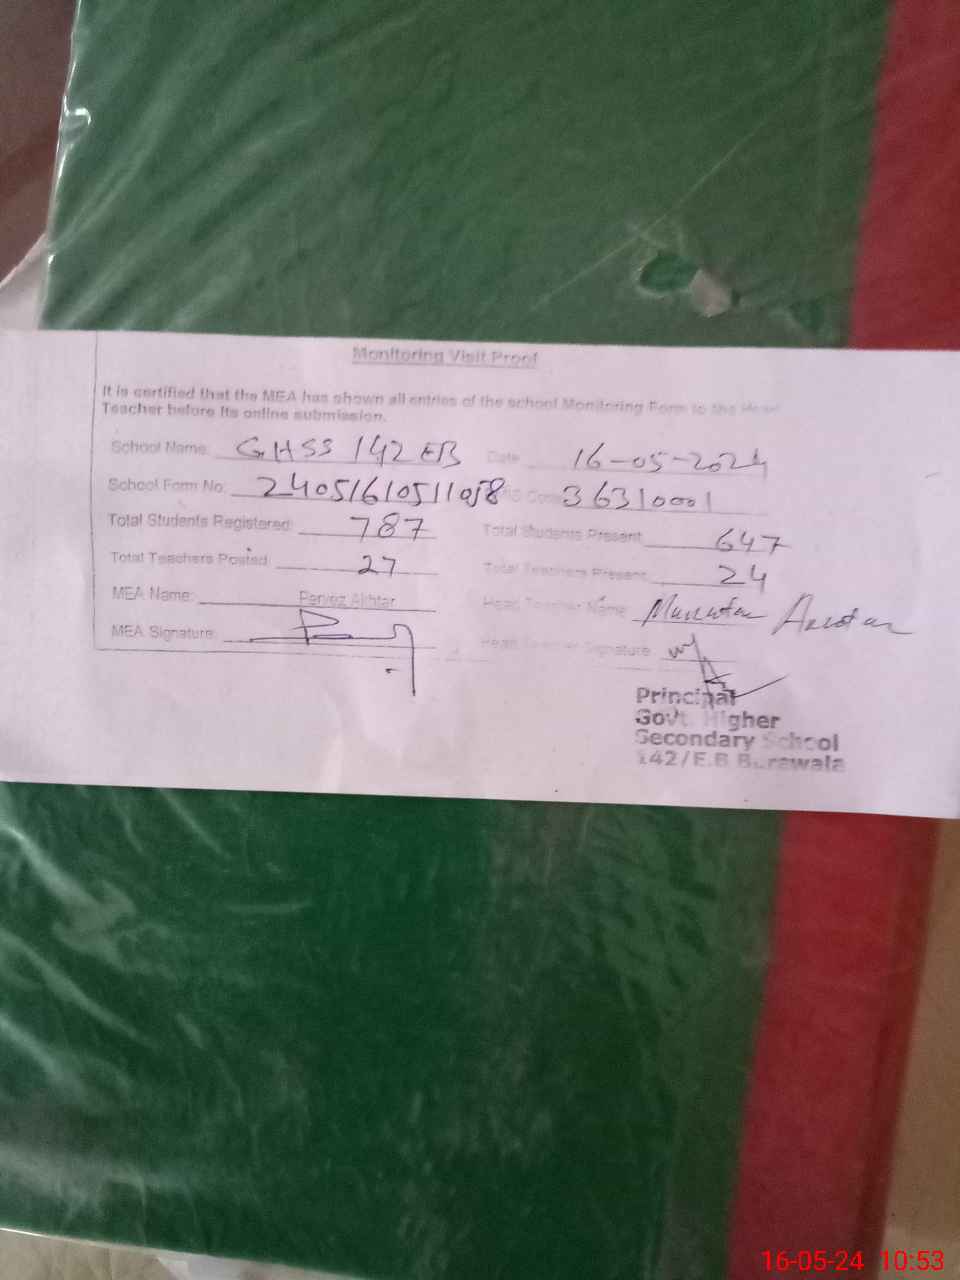 Monitoring Visit Proof
It is certified that the MEA has shown all entries of the school Monitoring Form to the Head
Teacher before its online submission.
School Name: GHSS 142 EB Date 16-05-2024
School Form No: 24051610511058 Code 36310001
Total Students Registered: 787 Total Students Present 647
Total Teachers Posted: 27 Total Teachers Present: 24
MEA Name: Pervez Akhtar Head Teacher Name:
MEA Signature: Head Teacher Signature:
Principal
Govt. Higher
Secondary School
142/E.B Burewala
16-05-24 10:53